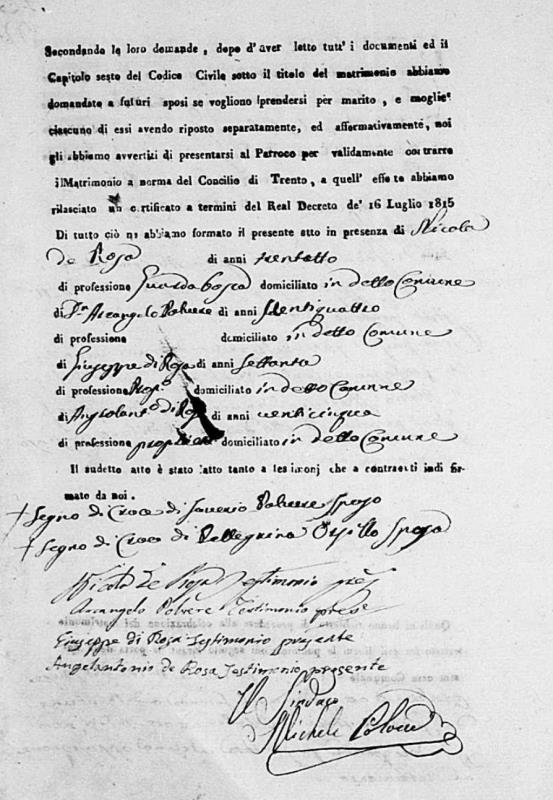 Secondando le loro demande, dopo d'aver letto tutt' i documenti ed il
Capitolo sesto del Codice Civile sotto il titolo del matrimonio abbiamo
domandato a futuri sposi se vogliono prendersi per marito, e moglie
ciascuno di essi avendo riposto separatamente, ed affermativamente, noi
gli abbiamo avvertiti di presentarsi al Parroco per validamente contrarre
il Matrimonio a norma del Concilio di Trento, a quell' effetto abbiamo
rilasciato un certificato a termini del Real Decreto de' 16 Luglio 1815
Di tutto ciò ne abbiamo formato il presente atto in presenza di Nicola
de Rosa di anni trentotto
di professione Guardabosca domiciliato in detto Comune
di Dn Arcangelo Polvere di anni
di professione domiciliato in detto Comune
di Giuseppe di Rosa di anni Settanta
di professione domiciliato in detto Comune
di di Rosa di anni venticinque
di professione domiciliato in detto Comune
Il sudetto atto è stato letto tanto a testimonj che a contraenti indi fir-
mato da noi.
+ Segno di Croce di Saverio Polvere Sposo
+ Segno di Croce di Pellegrina Sposa
Nicola de Rosa Testimonio
Arcangelo Polvere Testimonio
Giuseppe di Rosa Testimonio presente
Angelantonio de Rosa Testimonio presente
Il Sindaco
Michele